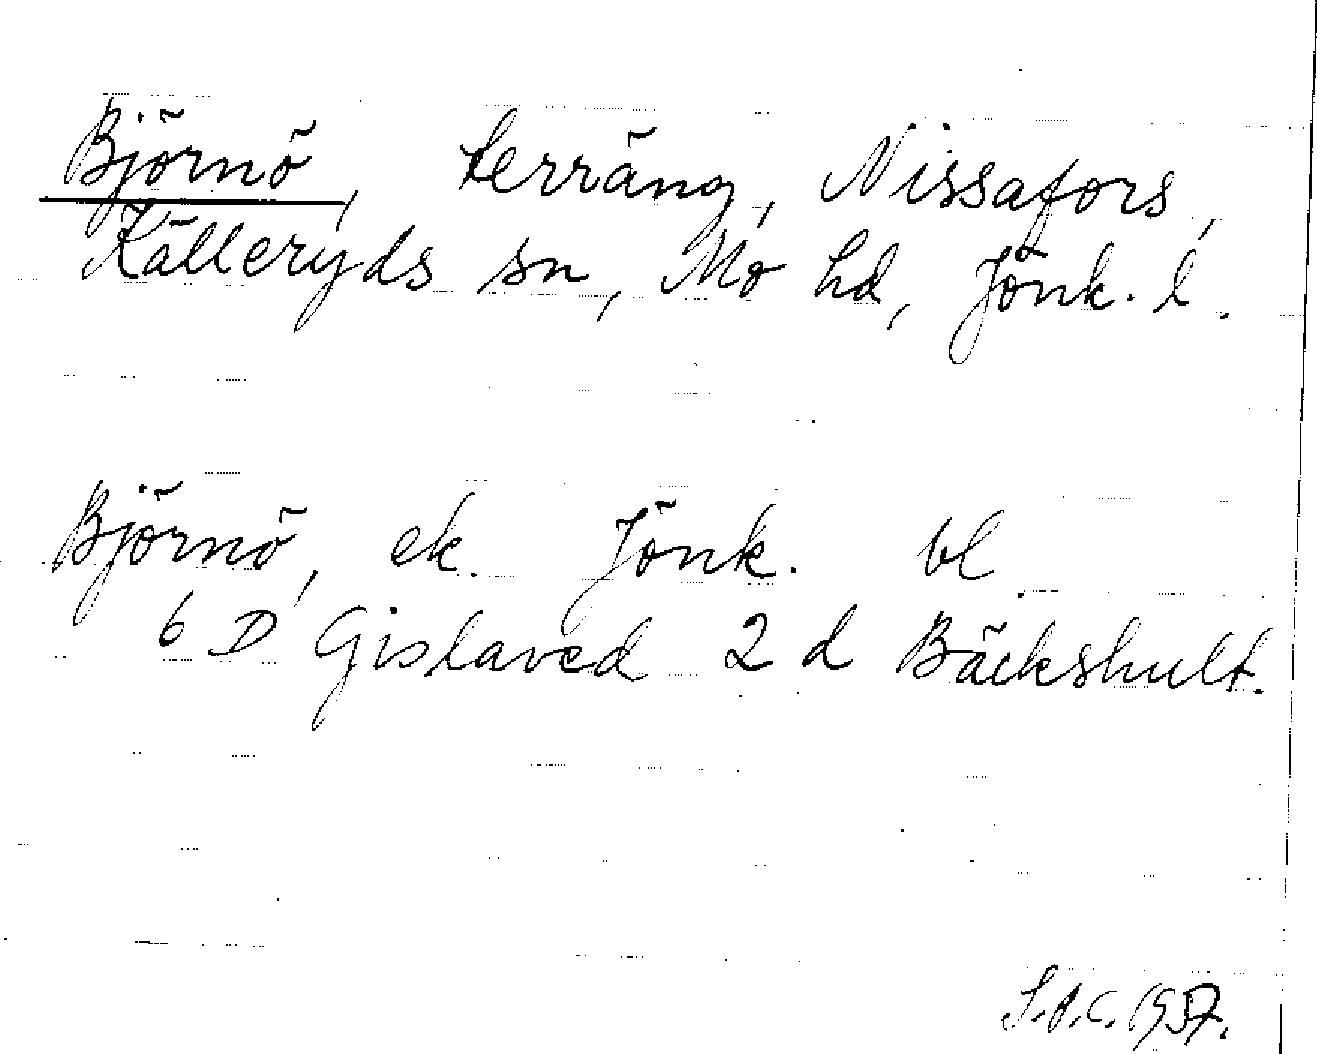 Björnö, terräng, Nissafors,
Källeryds sn, Mo hd, Jönk. l.
Björnö, ek. Jönk. bl
6 D Gislaved 2 d Bäckshult.
1957.